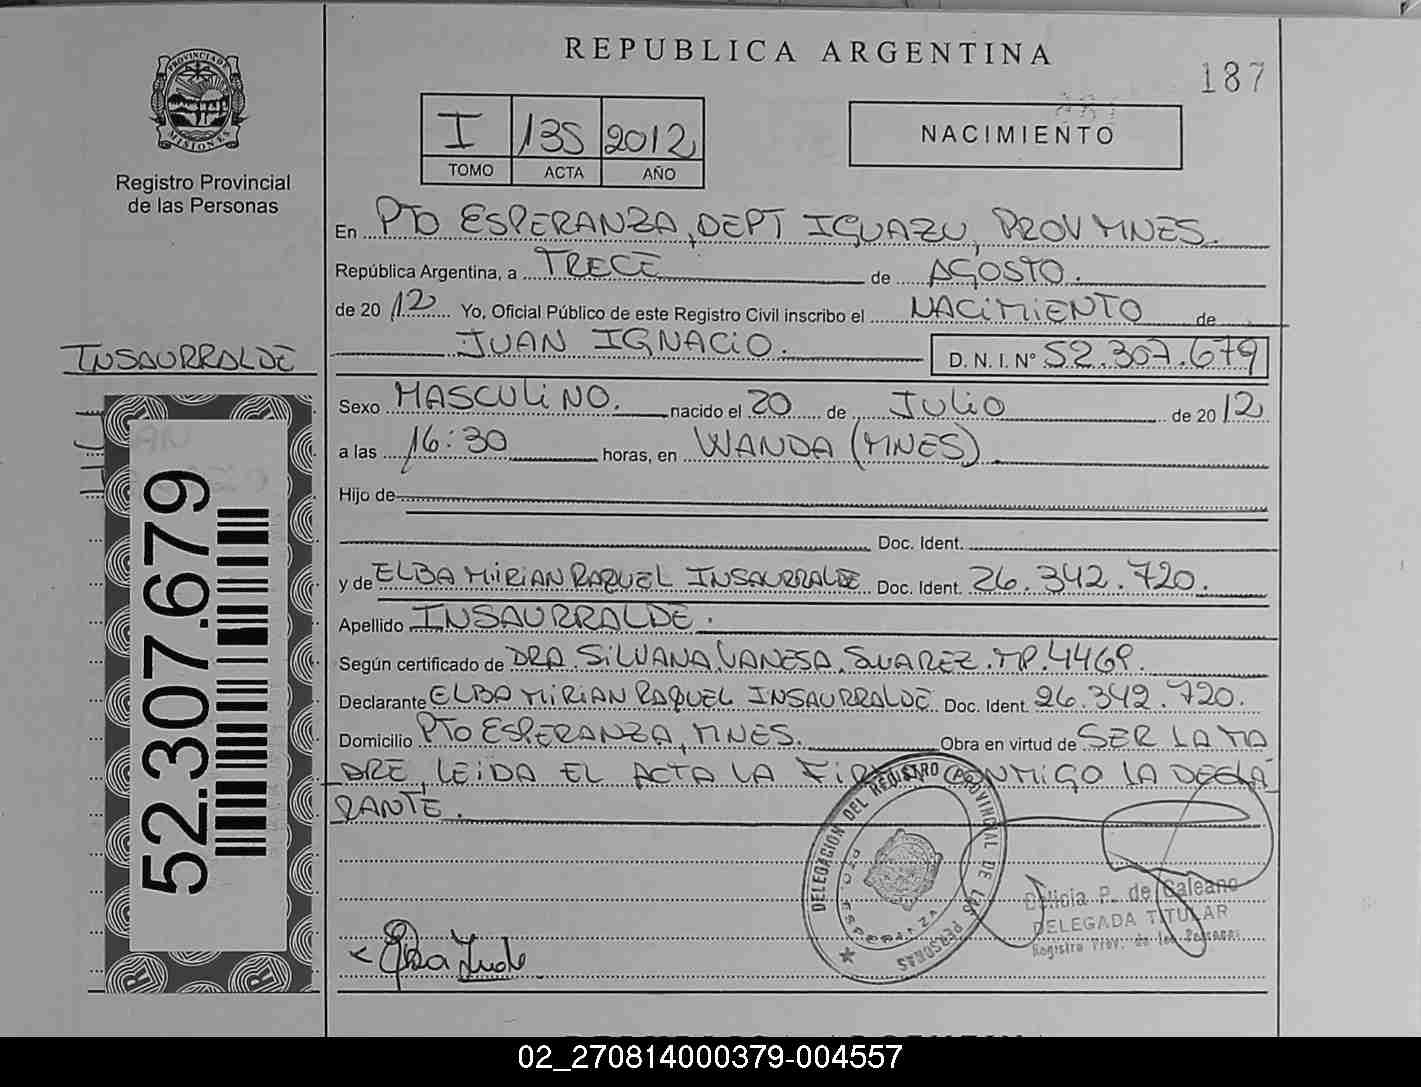 REPUBLICA ARGENTINA
187
PROVINCIA DE MISIONES
Registro Provincial
de las Personas
I 135 2012
TOMO ACTA AÑO
NACIMIENTO
En PTO ESPERANZA, DEPT IGUAZU, PROV MNES.
República Argentina, a TRECE de AGOSTO.
de 2012 Yo, Oficial Público de este Registro Civil inscribo el NACIMIENTO de
JUAN IGNACIO. D. N. I. Nº 52.307.679
INSAURRALDE
Sexo MASCULINO. nacido el 20 de JULIO de 2012
a las 16:30 horas, en WANDA (MNES)
Hijo de
Doc. Ident.
y de ELBA MIRIAN RAQUEL INSAURRALDE Doc. Ident. 26.342.720.
Apellido INSAURRALDE.
Según certificado de DRA. SILVANA VANESA SUAREZ. MP. 4469.
Declarante ELBA MIRIAN RAQUEL INSAURRALDE Doc. Ident. 26.342.720.
Domicilio PTO ESPERANZA, MNES. Obra en virtud de SER LA MA
DRE, LEIDA EL ACTA LA FIRMA CONMIGO LA DECLA
RANTE.
52.307.679
DELEGACION DEL REGISTRO PROVINCIAL DE LAS PERSONAS
PTO ESPERANZA
Delicia P. de Galeano
DELEGADA TITULAR
Registro Prov. de las Personas
02_270814000379-004557